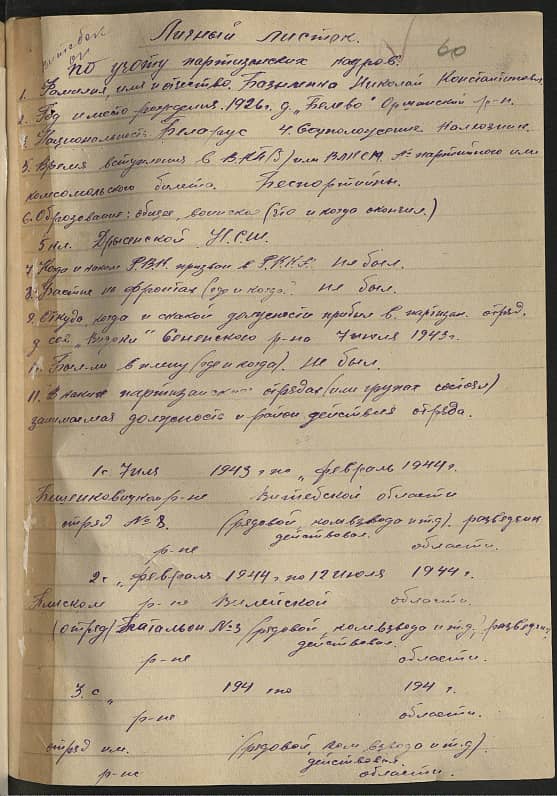 60
Личный листок.
по учоту партизанских кадров.
1. Фамилия, имя и отчество. Николай Константинович
2. Год и место рождения. 1926 г. д. р-н.
3. Национальность. Беларус 4. Соцположение. Колхозник.
5. Время вступления в ВКП(б) или ВЛКСМ. № партийного или
комсомольского билета. Беспортийный.
6. Образование: общее, воинское (что и когда окончил.)
5 кл. Дрысенской Н.С.Ш.
7. Когда и каким Р.В.К. призван в Р.К.К.А. Не был.
8. Участие на фронтах (где и когда. не был.
9. Откуда, когда и с какой должности прибыл в партизан. отряд.
д. Сененского р-на 7 июля 1943 г.
10. Был-ли в плену (где и когда). Не был.
11. В каких партизанских отрядах (или группах состоял)
занимаемая должность и район действия отряда.
1 с 7 иля 1943 г по „ февраль 1944 г.
р-не Витебской области
отряд № 3 (рядовой, ком. взвода и т.д.). разведчик
действовал.
р-не области.
2 с „ февраля 1944 г по 12 июля 1944 г.
р-не Вилейской области.
(отряд) Батальон № 3 (рядовой, ком. взвода и т.д.) разведчик
действовал.
р-не области.
3. с „ 194 г по 194 г.
р-не области.
отряд им. (рядовой, ком. взвода и т.д.).
действовал.
р-не области.